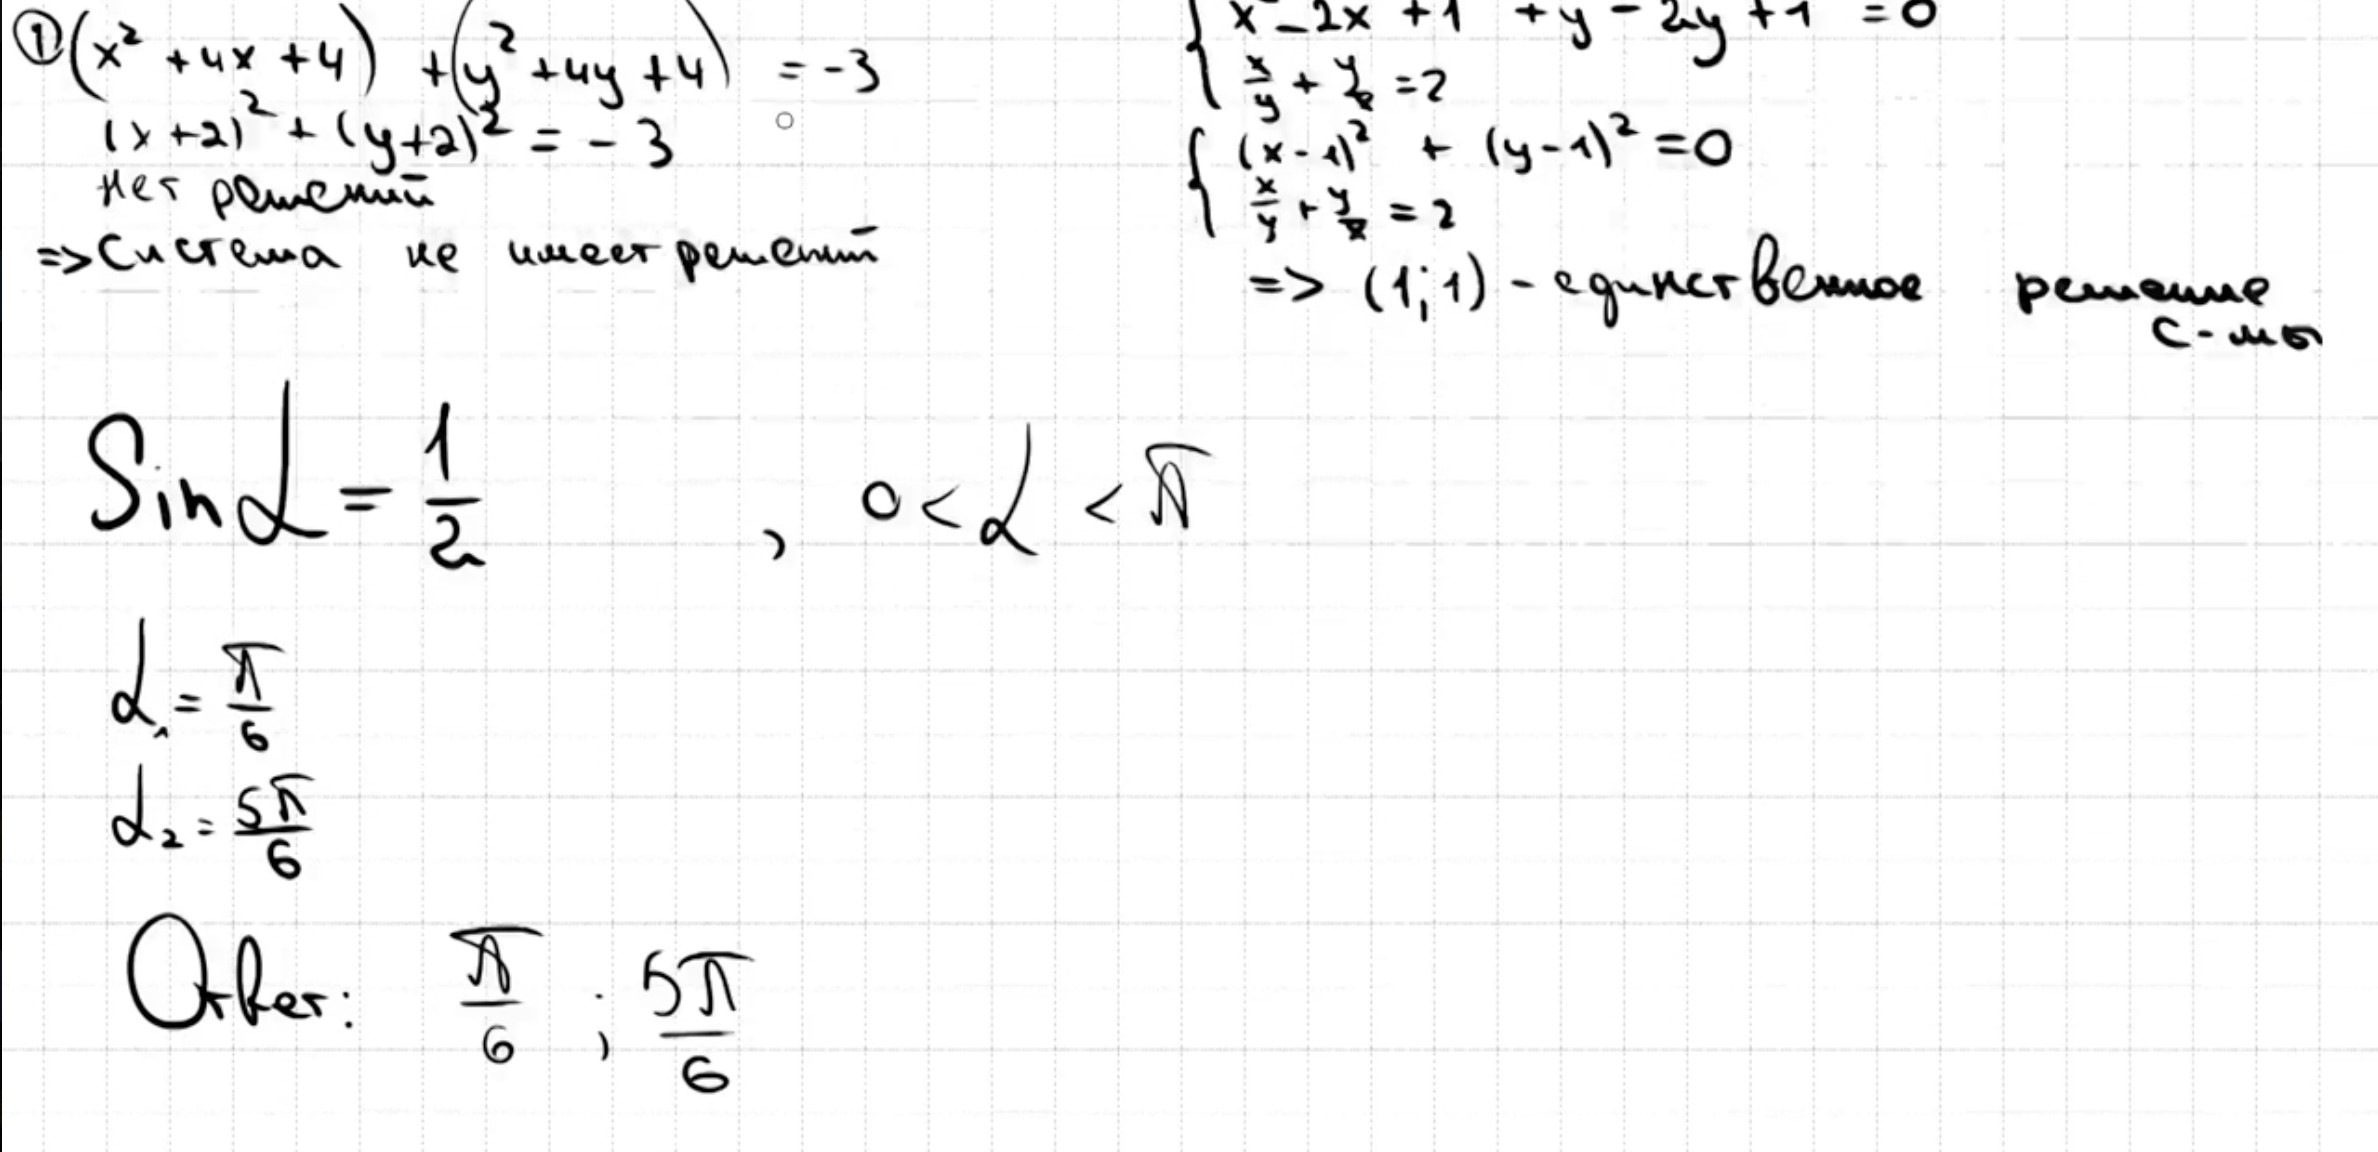 ① (x² + 4x + 4) + (y² + 4y + 4) = -3
(x + 2)² + (y + 2)² = - 3
нет решений
=> Система не имеет решений
{ x - 2x + 1 + y - 2y + 1 = 0
x/y + y/x = 2
{ (x - 1)² + (y - 1)² = 0
x/y + y/x = 2
=> (1; 1) - единственное решение
с-мы
Sin α = 1/2 , 0 < α < π
α₁ = π/6
α₂ = 5π/6
Ответ: π/6 ; 5π/6